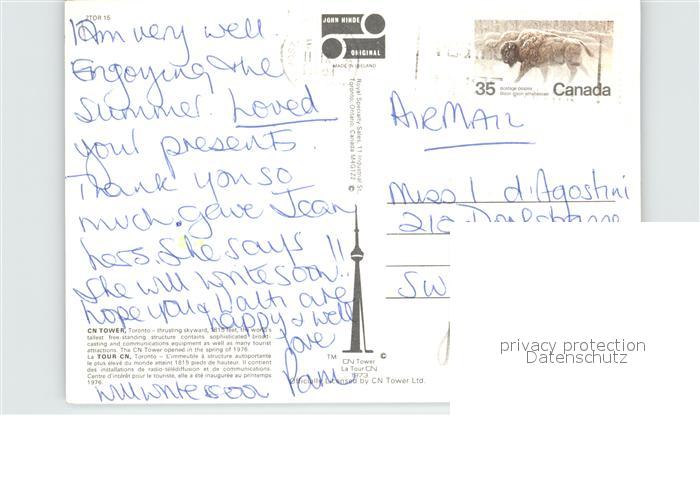 2TOR 15
I Am very well.
Engoying the
summer. Loved
your presents.
Thank you so
much. gave Jean
hers. She says !!
She will write soon..
hope you & are
happy & well
love
Pam
will write soon
CN TOWER, Toronto – thrusting skyward, 1815 feet, the world's
tallest free-standing structure contains sophisticated broad-
casting and communications equipment as well as many tourist
attractions. The CN Tower opened in the spring of 1976.
La TOUR CN, Toronto – L'immeuble à structure autoportante
le plus élevé du monde atteint 1815 pieds de hauteur. Il contient
des installations de radio-télédiffusion et de communications.
Centre d'intérêt pour le touriste, elle a été inaugurée au printemps
1976.
JOHN HINDE
ORIGINAL
MADE IN IRELAND
Royal Specialty Sales, 11 Industrial St.
Toronto, Ontario, Canada M4G1Z2 ©
TM ©
CN Tower
La Tour CN
1973
Officially licensed by CN Tower Ltd.
35 postage postes
bison bison athabascae
Canada
AIRMAIL
Miss I d'Agostini
21a
SW
privacy protection
Datenschutz